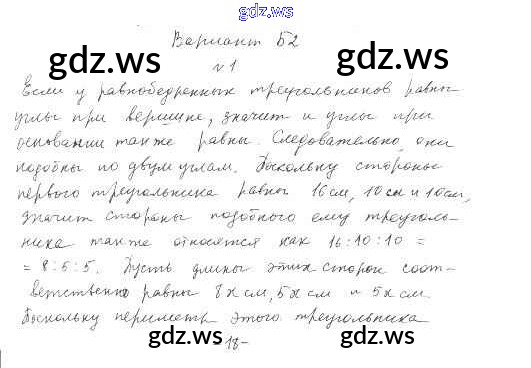 gdz.ws
Вариант Б2
gdz.ws
gdz.ws
№1
Если у равнобедренных треугольников равны
углы при вершине, значит и углы при
основании также равны. Следовательно, они
подобны по двум углам. Поскольку стороны
первого треугольника равны 16 см, 10 см и 10 см,
значит стороны подобного ему треуголь-
ника также относятся как 16:10:10 =
= 8:5:5. Пусть длины этих сторон соот-
ветственно равны 8x см, 5x см и 5x см.
Поскольку периметр этого треугольника
gdz.ws
-18-
gdz.ws